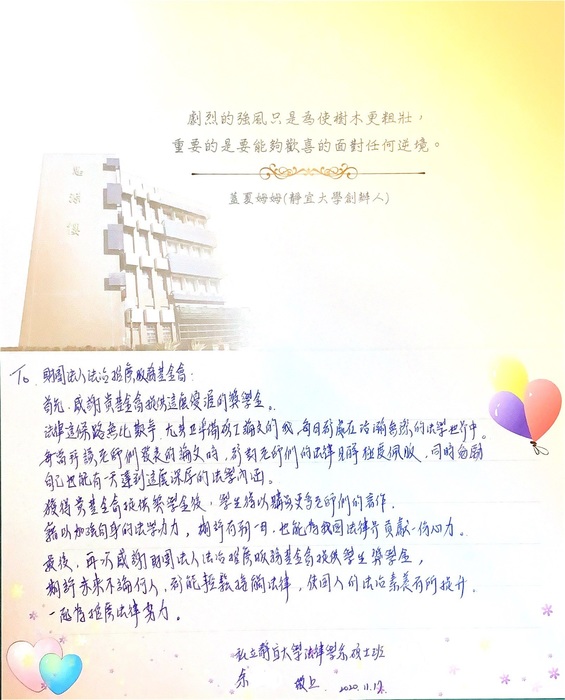 劇烈的強風只是為使樹木更粗壯，
重要的是要能夠歡喜的面對任何逆境。
蓋夏姆姆(靜宜大學創辦人)
To. 財團法人法治推廣服務基金會：
首先，感謝貴基金會提供這麼優渥的獎學金。
法律這條路無比艱辛，尤其正準備碩士論文的我，每日都處在浩瀚無際的法學世界中。
每當拜讀老師們發表的論文時，都對老師們的法律見解極度佩服，同時勉勵
自己也能有一天達到這麼深厚的法學內涵。
獲得貴基金會提供獎學金後，學生得以購買更多老師們的著作，
藉以加強自身的法學力，期許有朝一日，也能為我國法律界貢獻一份心力。
最後，再次感謝財團法人法治推廣服務基金會提供學生獎學金，
期許未來不論何人，都能輕鬆接觸法律，使國人的法治素養有所提升，
一起為推廣法律努力。
私立靜宜大學法律學系碩士班
余 敬上 2020.11.12.